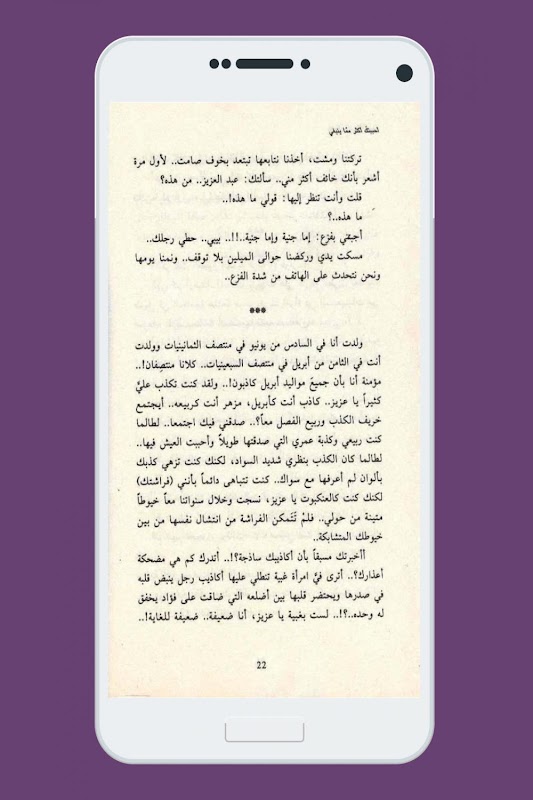 احببتك أكثر مما ينبغي
تركتنا ومشت، أخذنا نتابعها تبتعد بخوف صامت.. لأول مرة
أشعر بأنك خائف أكثر مني.. سألتك: عبد العزيز.. من هذه؟
قلت وأنت تنظر إليها: قولي ما هذه!..
ما هذه..؟
أجبتني بفزع: إما جنية وإما جنية..!!.. بيبي.. حطي رجلك..
مسكت يدي وركضنا حوالى الميلين بلا توقف.. ونمنا يومها
ونحن نتحدث على الهاتف من شدة الفزع..
***
ولدت أنا في السادس من يونيو في منتصف الثمانينيات وولدت
أنت في الثامن من أبريل في منتصف السبعينيات.. كلانا منتصِفان!..
مؤمنة أنا بأن جميعَ مواليد أبريل كاذبون!.. ولقد كنت تكذب عليَّ
كثيراً يا عزيز.. كاذب أنت كأبريل، مزهر أنت كربيعه.. أيجتمع
خريف الكذب وربيع الفصل معاً؟.. صدقني فيك اجتمعا.. لطالما
كنت ربيعي وكذبة عمري التي صدقتها طويلاً وأحببت العيش فيها..
لطالما كان الكذب بنظري شديد السواد، لكنك كنت تزهي كذبك
بألوان لم أعرفها مع سواك.. كنت تتباهى دائماً بأنني (فراشتك)
لكنك كنت كالعنكبوت يا عزيز، نسجت وخلال سنواتنا معاً خيوطاً
متينة من حولي.. فلمْ تَتَمكن الفراشة من انتشال نفسها من بين
خيوطك المتشابكة..
أأخبرتك مسبقاً بأن أكاذيبك ساذجة؟!.. أتدرك كم هي مضحكة
أعذارك؟.. أترى فيَّ امرأة غبية تنطلي عليها أكاذيب رجل ينبض قلبه
في صدرها ويحتضر قلبها بين أضلعه التي ضاقت على فؤاد يخفق
له وحده..؟!.. لست بغبية يا عزيز، أنا ضعيفة.. ضعيفة للغاية!..
22